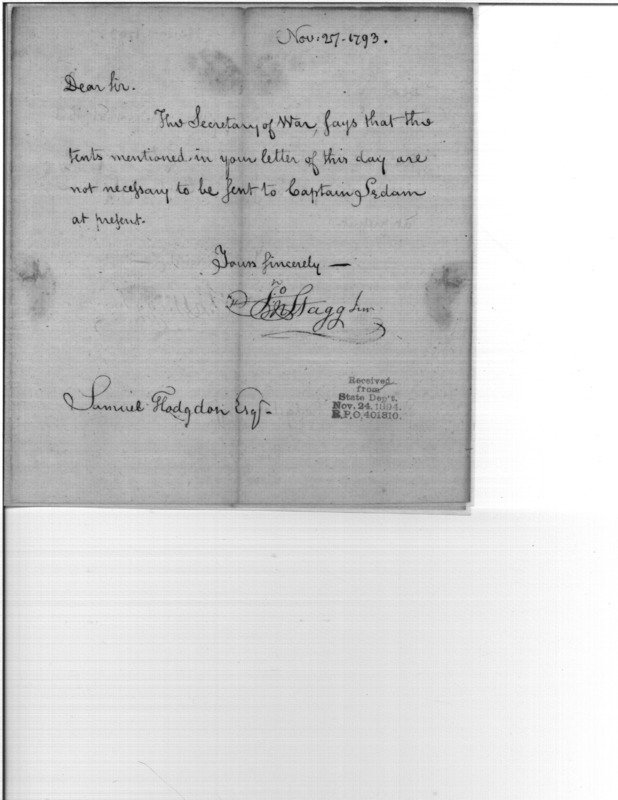 Nov. 27. 1793.
Dear Sir.
The Secretary of War, says that the
tents mentioned in your letter of this day are
not necessary to be sent to Captain Sedam
at present.
Yours sincerely —
Jno Stagg Junr
Samuel Hodgdon Esqr.
Received
from
State Dep't.
Nov. 24, 1894.
R.P.O. 401810.